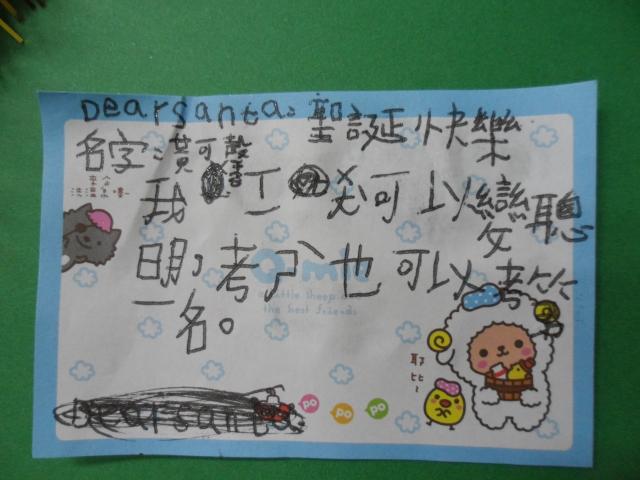 Dearsanta。聖誕快樂
名字:黃可馨
我ㄒㄧㄨㄤˋ可以變聰
明,考ㄕˋ也可以考第
一名。
the best friends
耶比~
Dearsanta
po po po